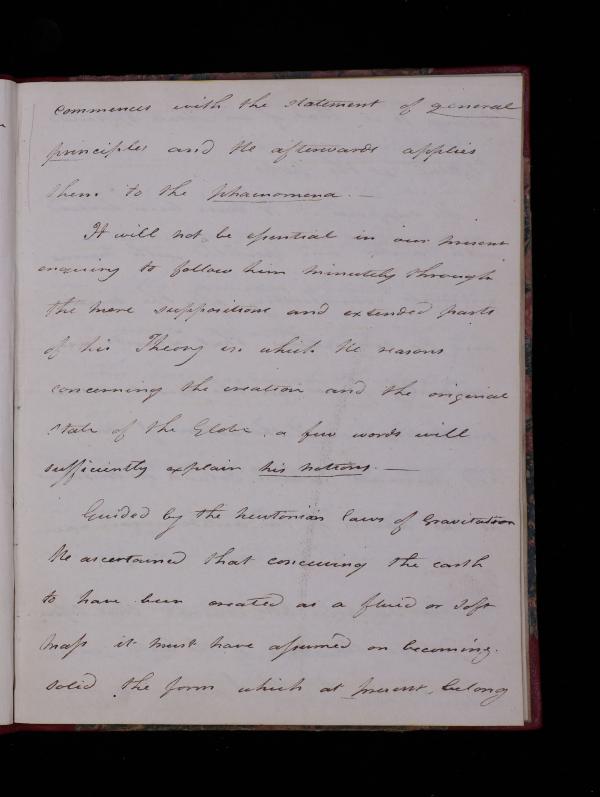 commences with the statement of general
principles and He afterwards applies
them to the phaenomena. —
It will not be essential in our present
enquiry to follow him minutely through
the mere suppositions and extended parts
of his Theory in which He reasons
concerning the creation and the original
state of the Globe. a few words will
sufficiently explain his notions. —
Guided by the Newtonian laws of Gravitation
He ascertained that conceiving the earth
to have been created as a fluid or soft
mass it must have assumed on becoming
solid the form which at present belong